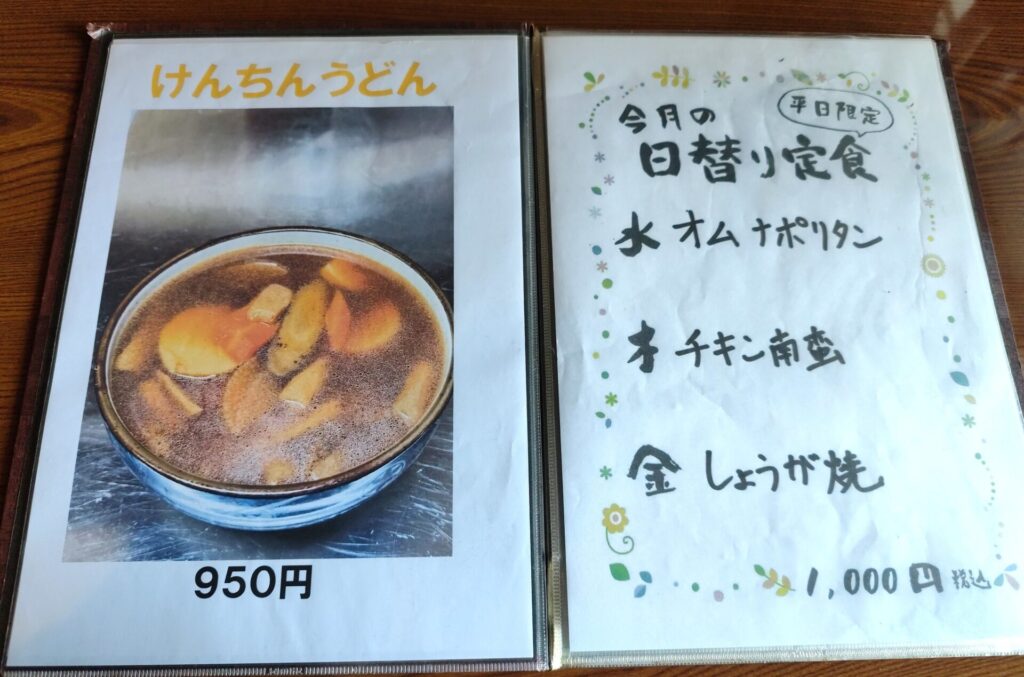 けんちんうどん
950円
平日限定
今月の
日替り定食
水 オムナポリタン
木 チキン南蛮
金 しょうが焼
1,000円 税込